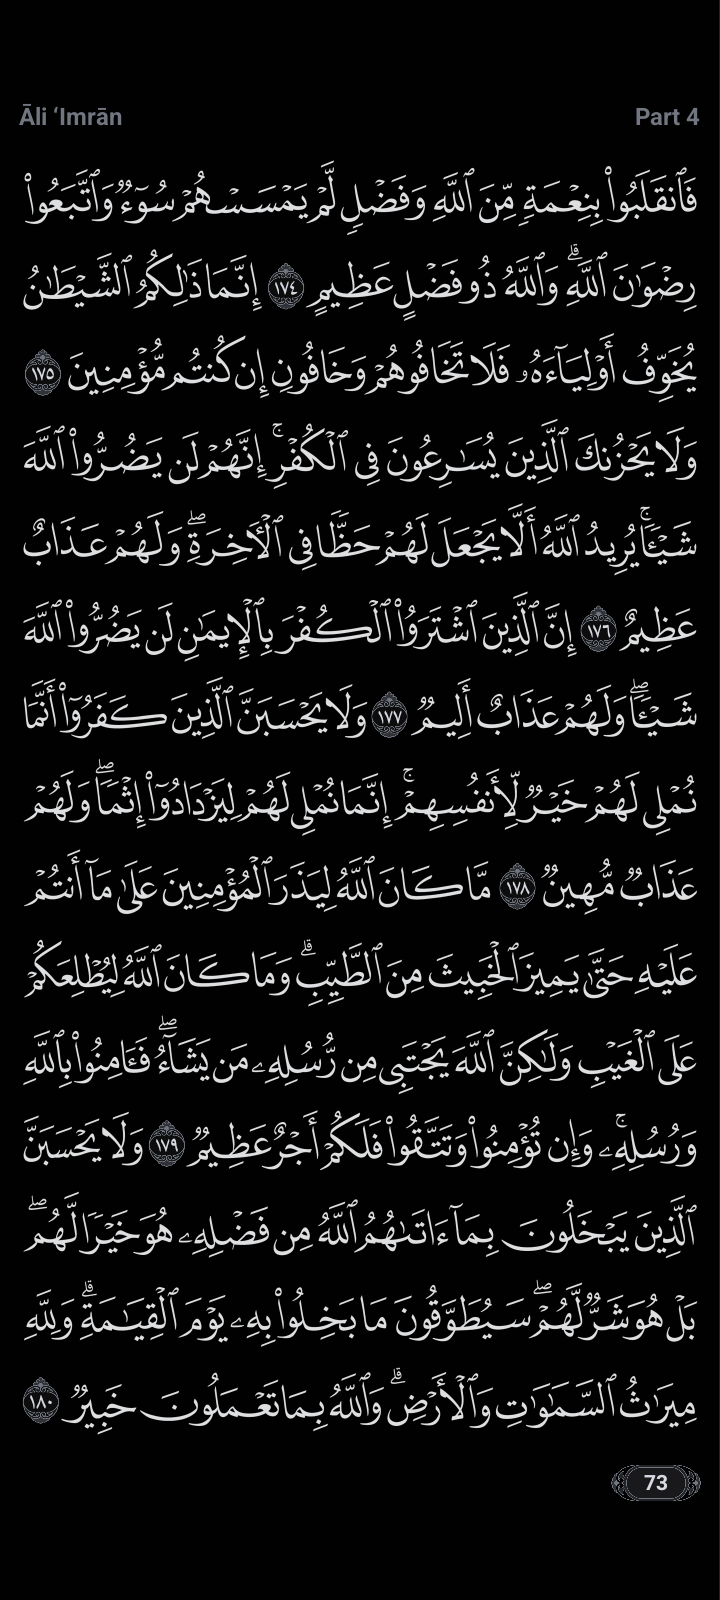 Āli ‘Imrān
Part 4
فَٱنقَلَبُوا۟ بِنِعْمَةٍ مِّنَ ٱللَّهِ وَفَضْلٍ لَّمْ يَمْسَسْهُمْ سُوٓءٌ وَٱتَّبَعُوا۟
رِضْوَٰنَ ٱللَّهِ ۗ وَٱللَّهُ ذُو فَضْلٍ عَظِيمٍ ١٧٤ إِنَّمَا ذَٰلِكُمُ ٱلشَّيْطَٰنُ
يُخَوِّفُ أَوْلِيَآءَهُۥ فَلَا تَخَافُوهُمْ وَخَافُونِ إِن كُنتُم مُّؤْمِنِينَ ١٧٥
وَلَا يَحْزُنكَ ٱلَّذِينَ يُسَٰرِعُونَ فِى ٱلْكُفْرِ ۚ إِنَّهُمْ لَن يَضُرُّوا۟ ٱللَّهَ
شَيْـًٔا ۚ يُرِيدُ ٱللَّهُ أَلَّا يَجْعَلَ لَهُمْ حَظًّا فِى ٱلْـَٔاخِرَةِ ۖ وَلَهُمْ عَذَابٌ
عَظِيمٌ ١٧٦ إِنَّ ٱلَّذِينَ ٱشْتَرَوُا۟ ٱلْكُفْرَ بِٱلْإِيمَٰنِ لَن يَضُرُّوا۟ ٱللَّهَ
شَيْـًٔا ۖ وَلَهُمْ عَذَابٌ أَلِيمٌ ١٧٧ وَلَا يَحْسَبَنَّ ٱلَّذِينَ كَفَرُوٓا۟ أَنَّمَا
نُمْلِى لَهُمْ خَيْرٌ لِّأَنفُسِهِمْ ۚ إِنَّمَا نُمْلِى لَهُمْ لِيَزْدَادُوٓا۟ إِثْمًا ۖ وَلَهُمْ
عَذَابٌ مُّهِينٌ ١٧٨ مَّا كَانَ ٱللَّهُ لِيَذَرَ ٱلْمُؤْمِنِينَ عَلَىٰ مَآ أَنتُمْ
عَلَيْهِ حَتَّىٰ يَمِيزَ ٱلْخَبِيثَ مِنَ ٱلطَّيِّبِ ۗ وَمَا كَانَ ٱللَّهُ لِيُطْلِعَكُمْ
عَلَى ٱلْغَيْبِ وَلَٰكِنَّ ٱللَّهَ يَجْتَبِى مِن رُّسُلِهِۦ مَن يَشَآءُ ۖ فَـَٔامِنُوا۟ بِٱللَّهِ
وَرُسُلِهِۦ ۚ وَإِن تُؤْمِنُوا۟ وَتَتَّقُوا۟ فَلَكُمْ أَجْرٌ عَظِيمٌ ١٧٩ وَلَا يَحْسَبَنَّ
ٱلَّذِينَ يَبْخَلُونَ بِمَآ ءَاتَىٰهُمُ ٱللَّهُ مِن فَضْلِهِۦ هُوَ خَيْرًا لَّهُم ۖ
بَلْ هُوَ شَرٌّ لَّهُمْ ۖ سَيُطَوَّقُونَ مَا بَخِلُوا۟ بِهِۦ يَوْمَ ٱلْقِيَٰمَةِ ۗ وَلِلَّهِ
مِيرَٰثُ ٱلسَّمَٰوَٰتِ وَٱلْأَرْضِ ۗ وَٱللَّهُ بِمَا تَعْمَلُونَ خَبِيرٌ ١٨٠
73